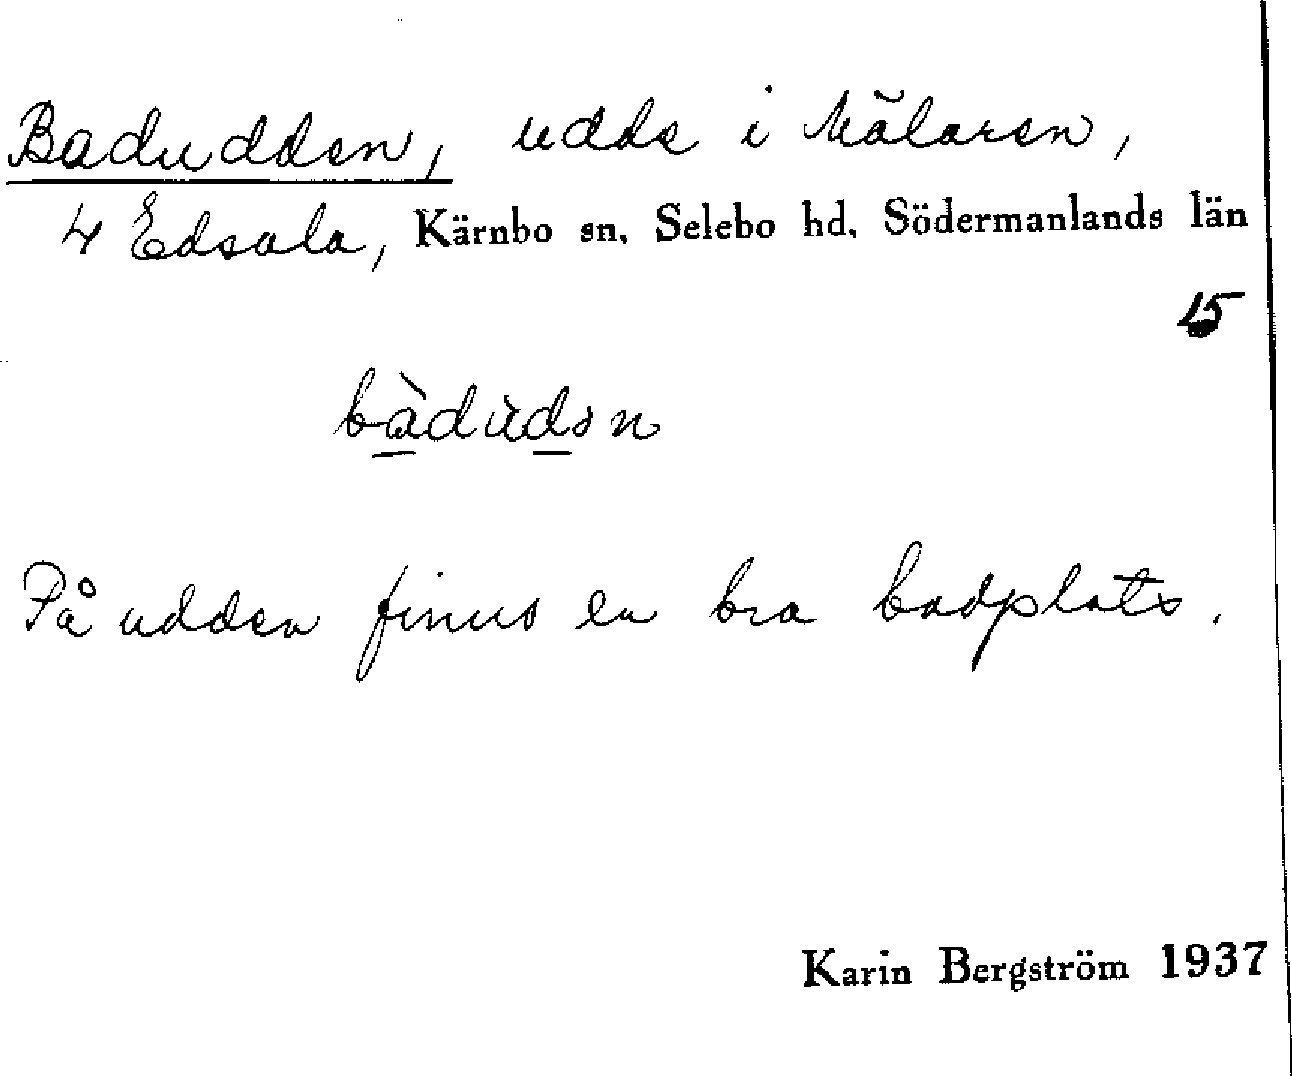 Badudden, udde i Mälaren,
4 Edsala, Kärnbo sn, Selebo hd, Södermanlands län
15
bàdùdən
På udden finns en bra badplats.
Karin Bergström 1937